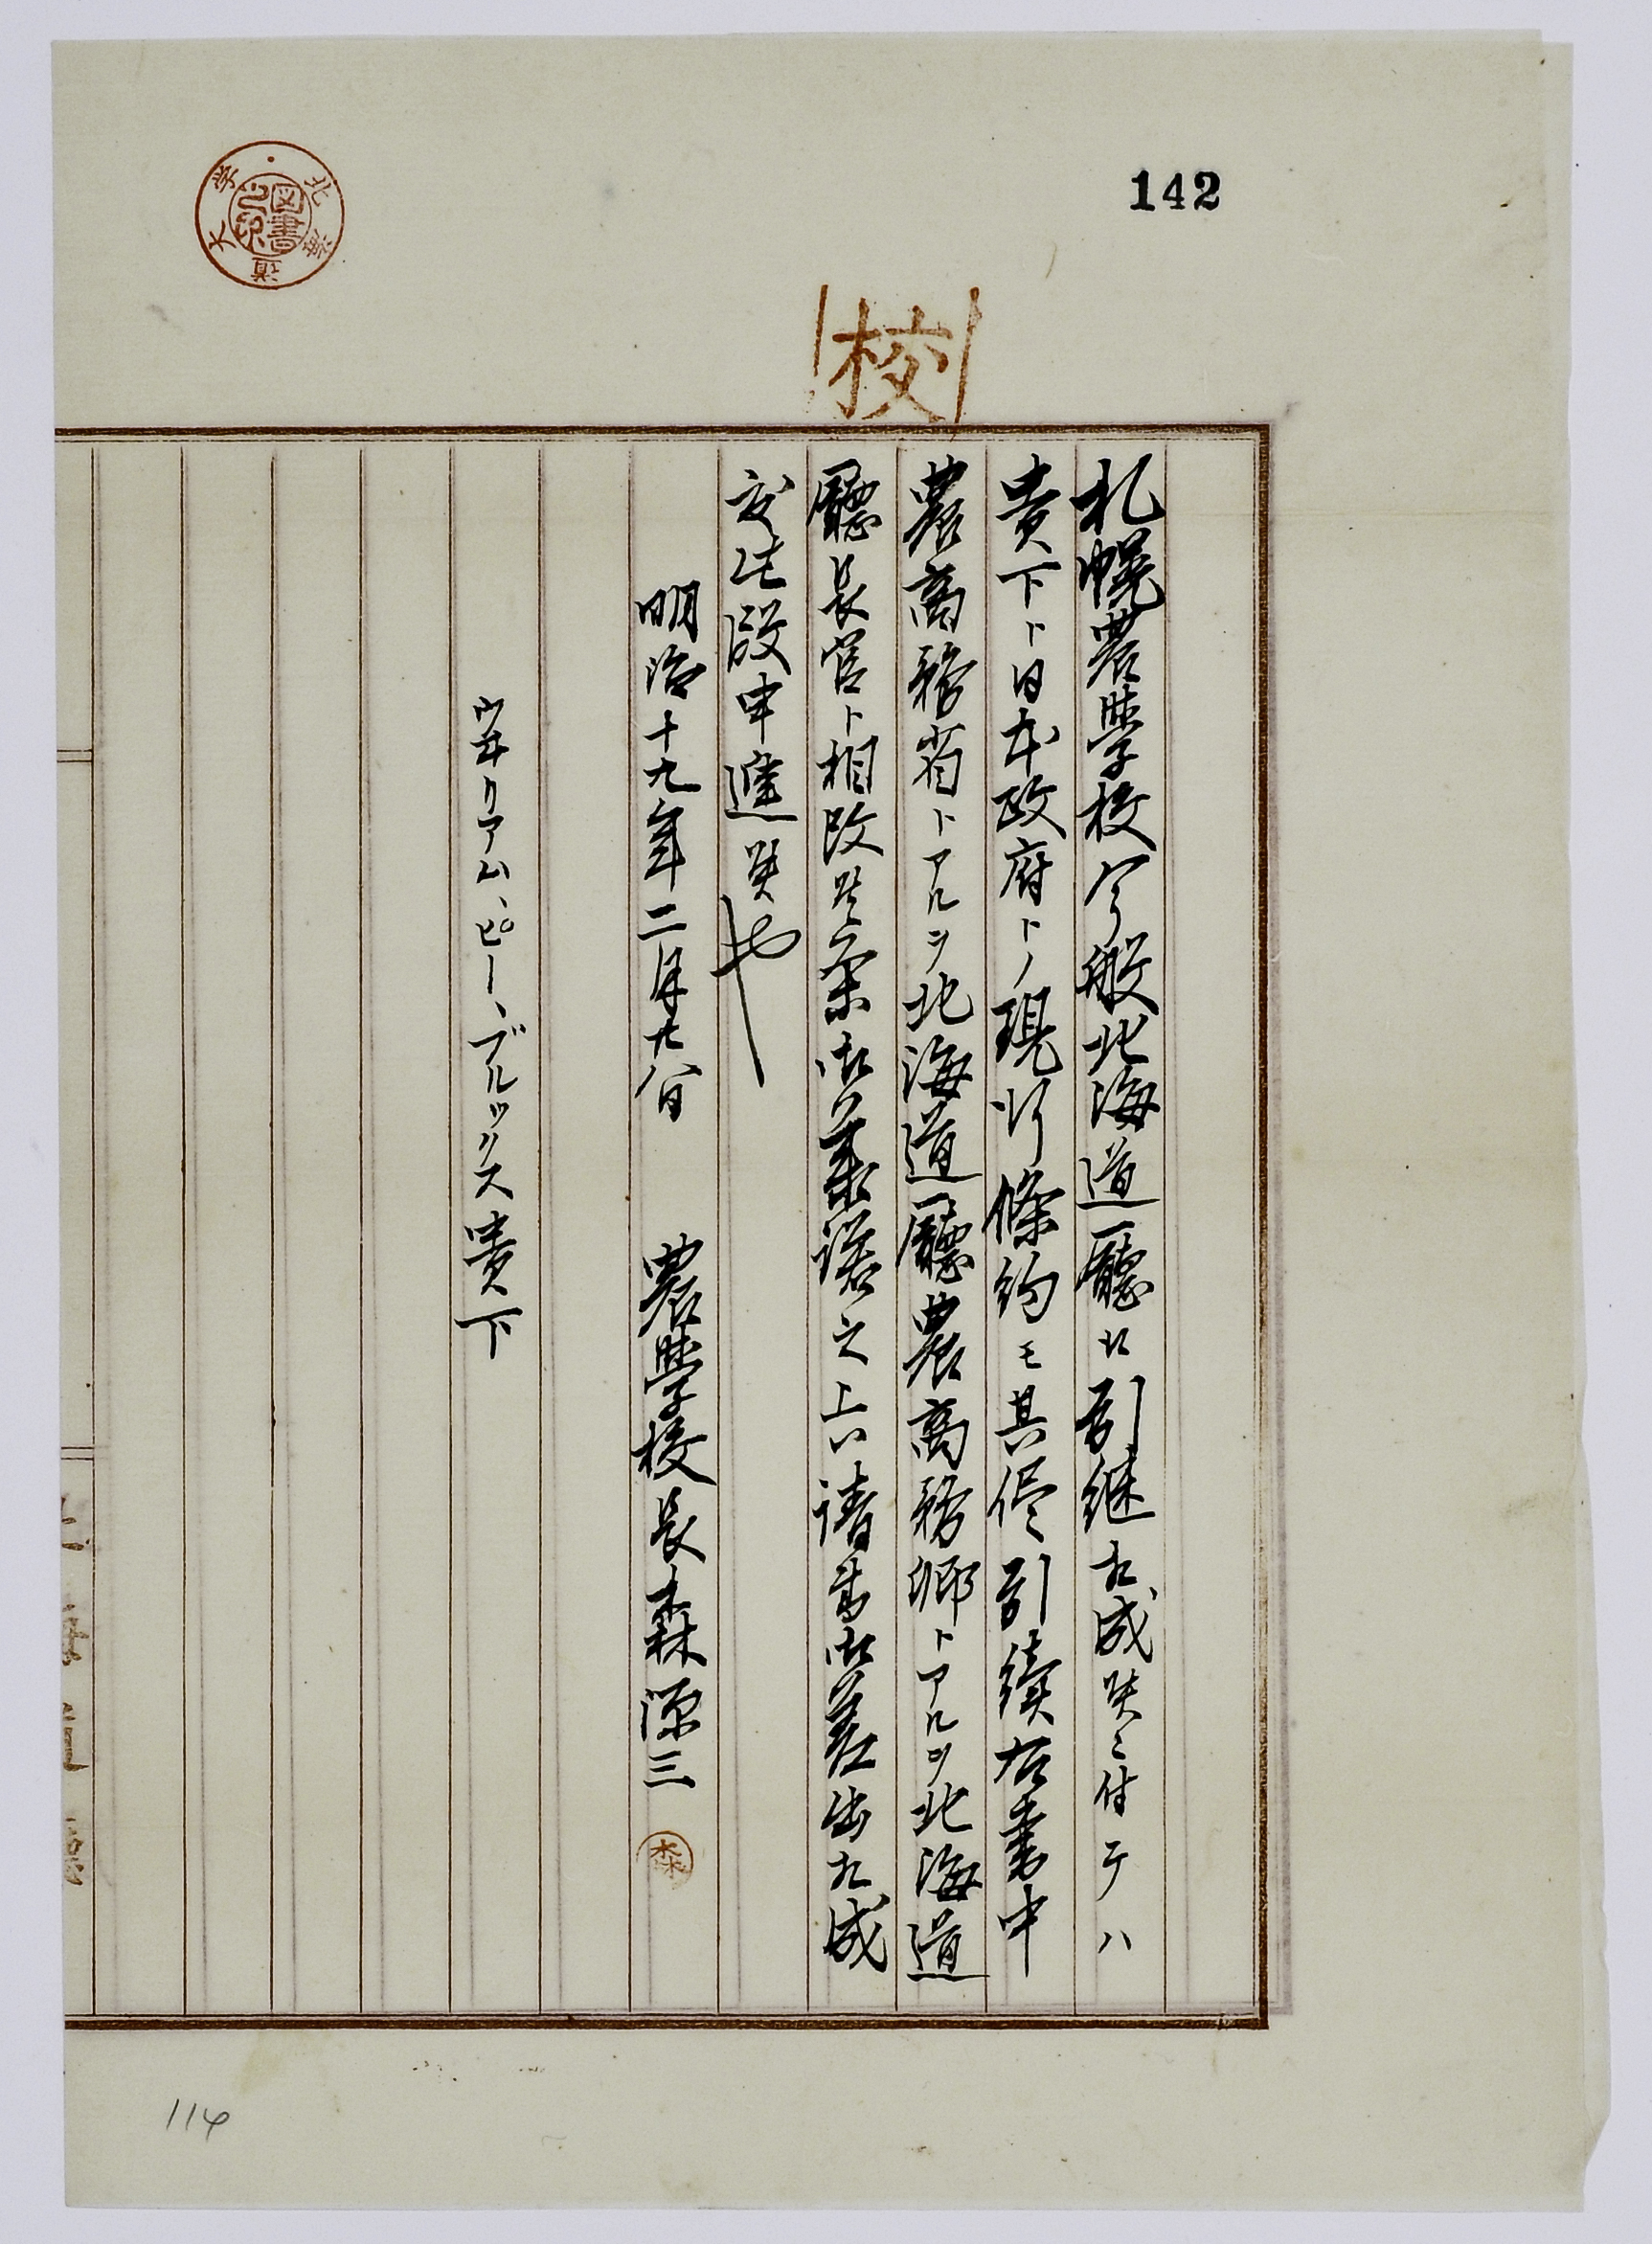 142
北海道大学
図書之印
校
札幌農學校今般北海道廳ヘ引継相成候ニ付テハ
貴下ト日本政府トノ現行條約モ其侭引續右書中
農商務省トアルヲ北海道廳農商務卿トアルヲ北海道
廳長官ト相改候条御承諾之上ハ請書御差出相成
度此段申進候也
明治十九年二月廿八日 農學校長森源三
森
ウヰリアム、ピー、ブルックス貴下
北海道廳
114